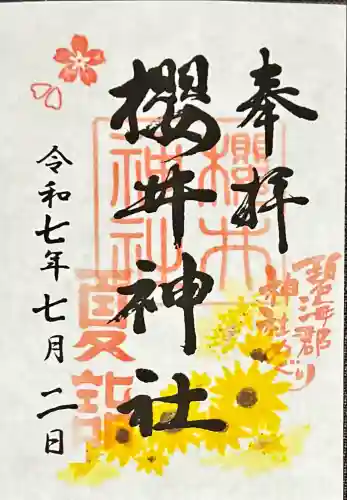 奉拝
碧海郡
神社めぐり
櫻井神社
櫻井
神社
夏詣
令和七年七月二日